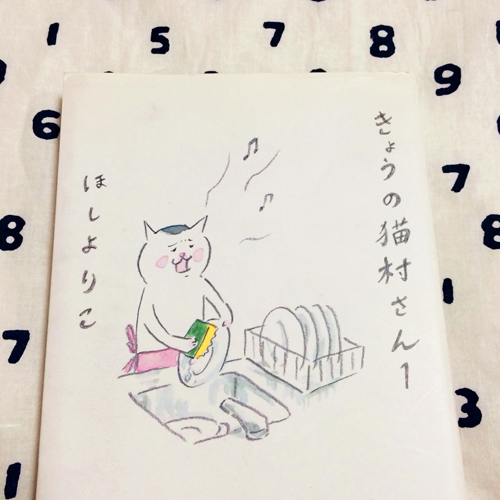 きょうの猫村さん1
ほしよりこ
1 5 7 8
6 9
7
8
1
7
3
1